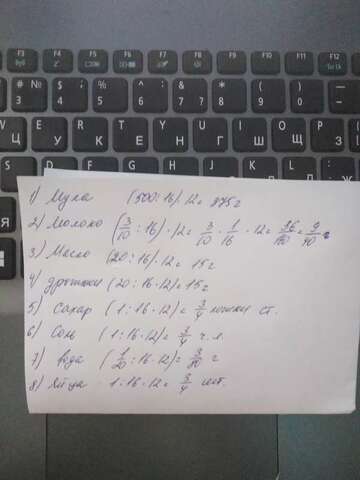 F3 F4 F5 F6 F7 F8 F9 F10 F11 F12 PrtSc
# № 3 $ ; 4 % 5 ^ : 6 & ? 7 * 8 ( 9 ) 0
W Ц E У R К T Е Y Н U Г I Ш O Щ P З
1) Мука (500:16)·12= 375г
2) Молоко (3/10 : 16)·12= 3/10 · 1/16 · 12= 36/160= 9/40 г
3) Масло (20:16)·12= 15г
4) дрожжи (20:16·12)=15г
5) Сахар (1:16·12)= 3/4 ложки ст.
6) Соль (1:16·12)= 3/4 ч.л.
7) вода (1/20:16·12)= 3/80 г
8) Яйца 1:16·12= 3/4 шт.